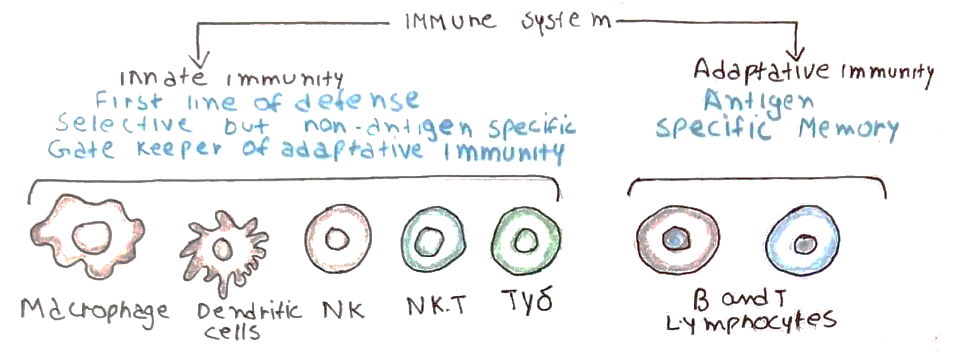 Immune system
Innate immunity
First line of defense
Selective but non-antigen specific
Gate Keeper of adaptative immunity
Adaptative immunity
Antigen
specific Memory
Macrophage
Dendritic
cells
NK
NK.T
Tγδ
B and T
Lymphocytes